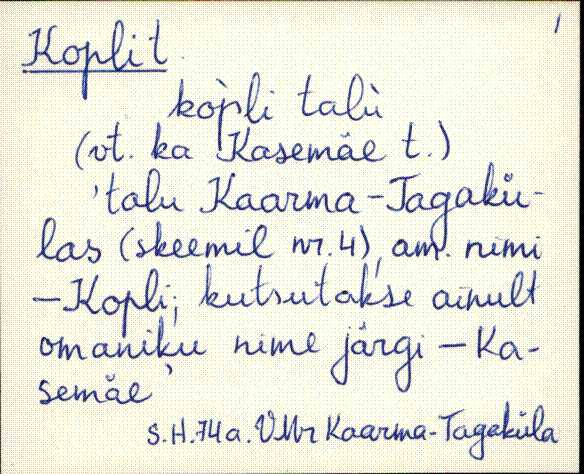 1
Kopli t.
kòpli talù
(vt. ka Kasemäe t.)
'talu Kaarma-Tagakü-
las (skeemil nr. 4), am. nimi
– Kopli; kutsutakse ainult
omaniku nime järgi – Ka-
semäe'
S.H. 74a. VMr Kaarma-Tageküla